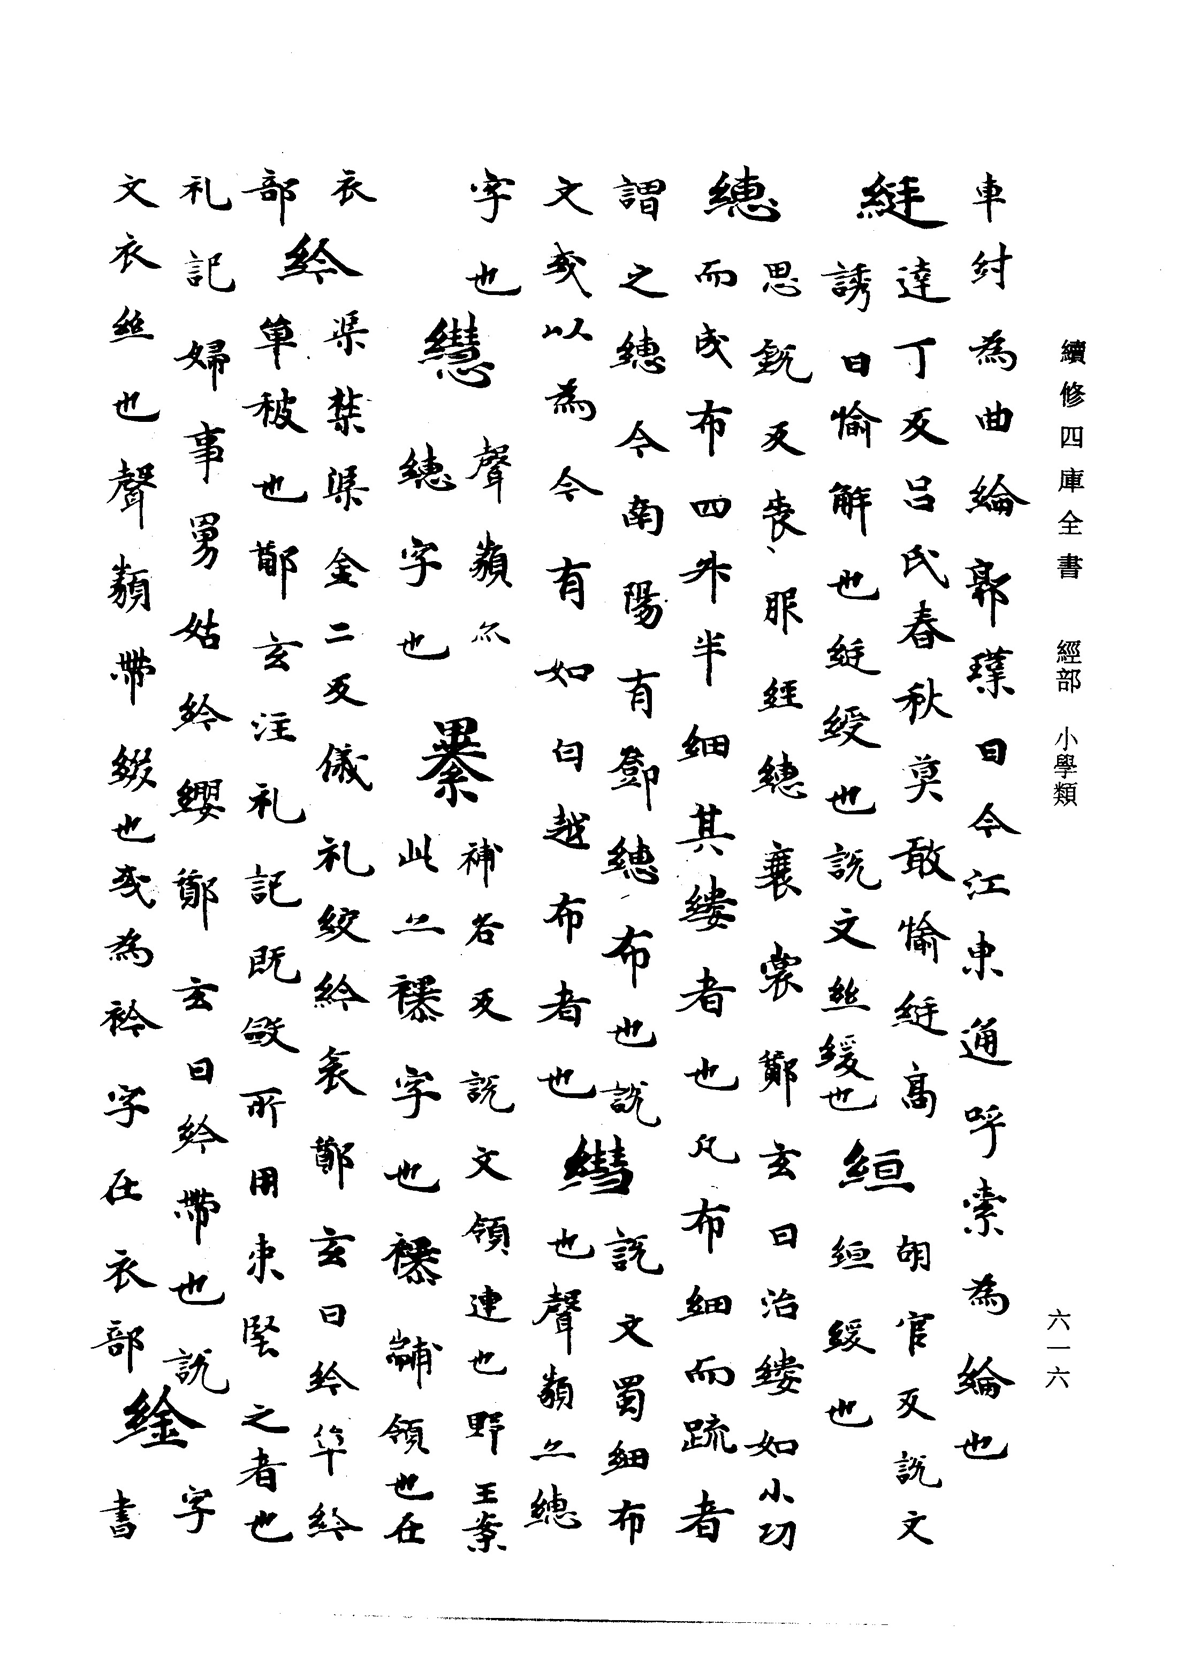 續修四庫全書 經部 小學類
六一六
車紂為曲綸郭璞曰今江東通呼索為綸也
綎達丁反呂氏春秋莫敢愉綎高
誘曰愉解也綎綬也說文絲緩也
絙胡官反說文
絙緩也
繐思銳反喪服絰繐衰裳鄭玄曰治縷如小功
而成布四升半細其縷者也凡布細而疏者
謂之繐今南陽有鄧繐布也說
文或以為今有如白越布者也
䌇說文蜀細布
也聲類亦繐
字也
聲類亦
繐字也
補各反說文領連也野王案
此亦襮字也襮黼領也在
衣
部
紟渠禁渠金二反儀礼絞紟衾鄭玄曰紟單紟
單被也鄭玄注礼記既斂所用束堅之者也
礼記婦事舅姑紟纓鄭玄曰紟帶也說
文衣絲也聲類帶綴也或為衿字在衣部
䋮字
書